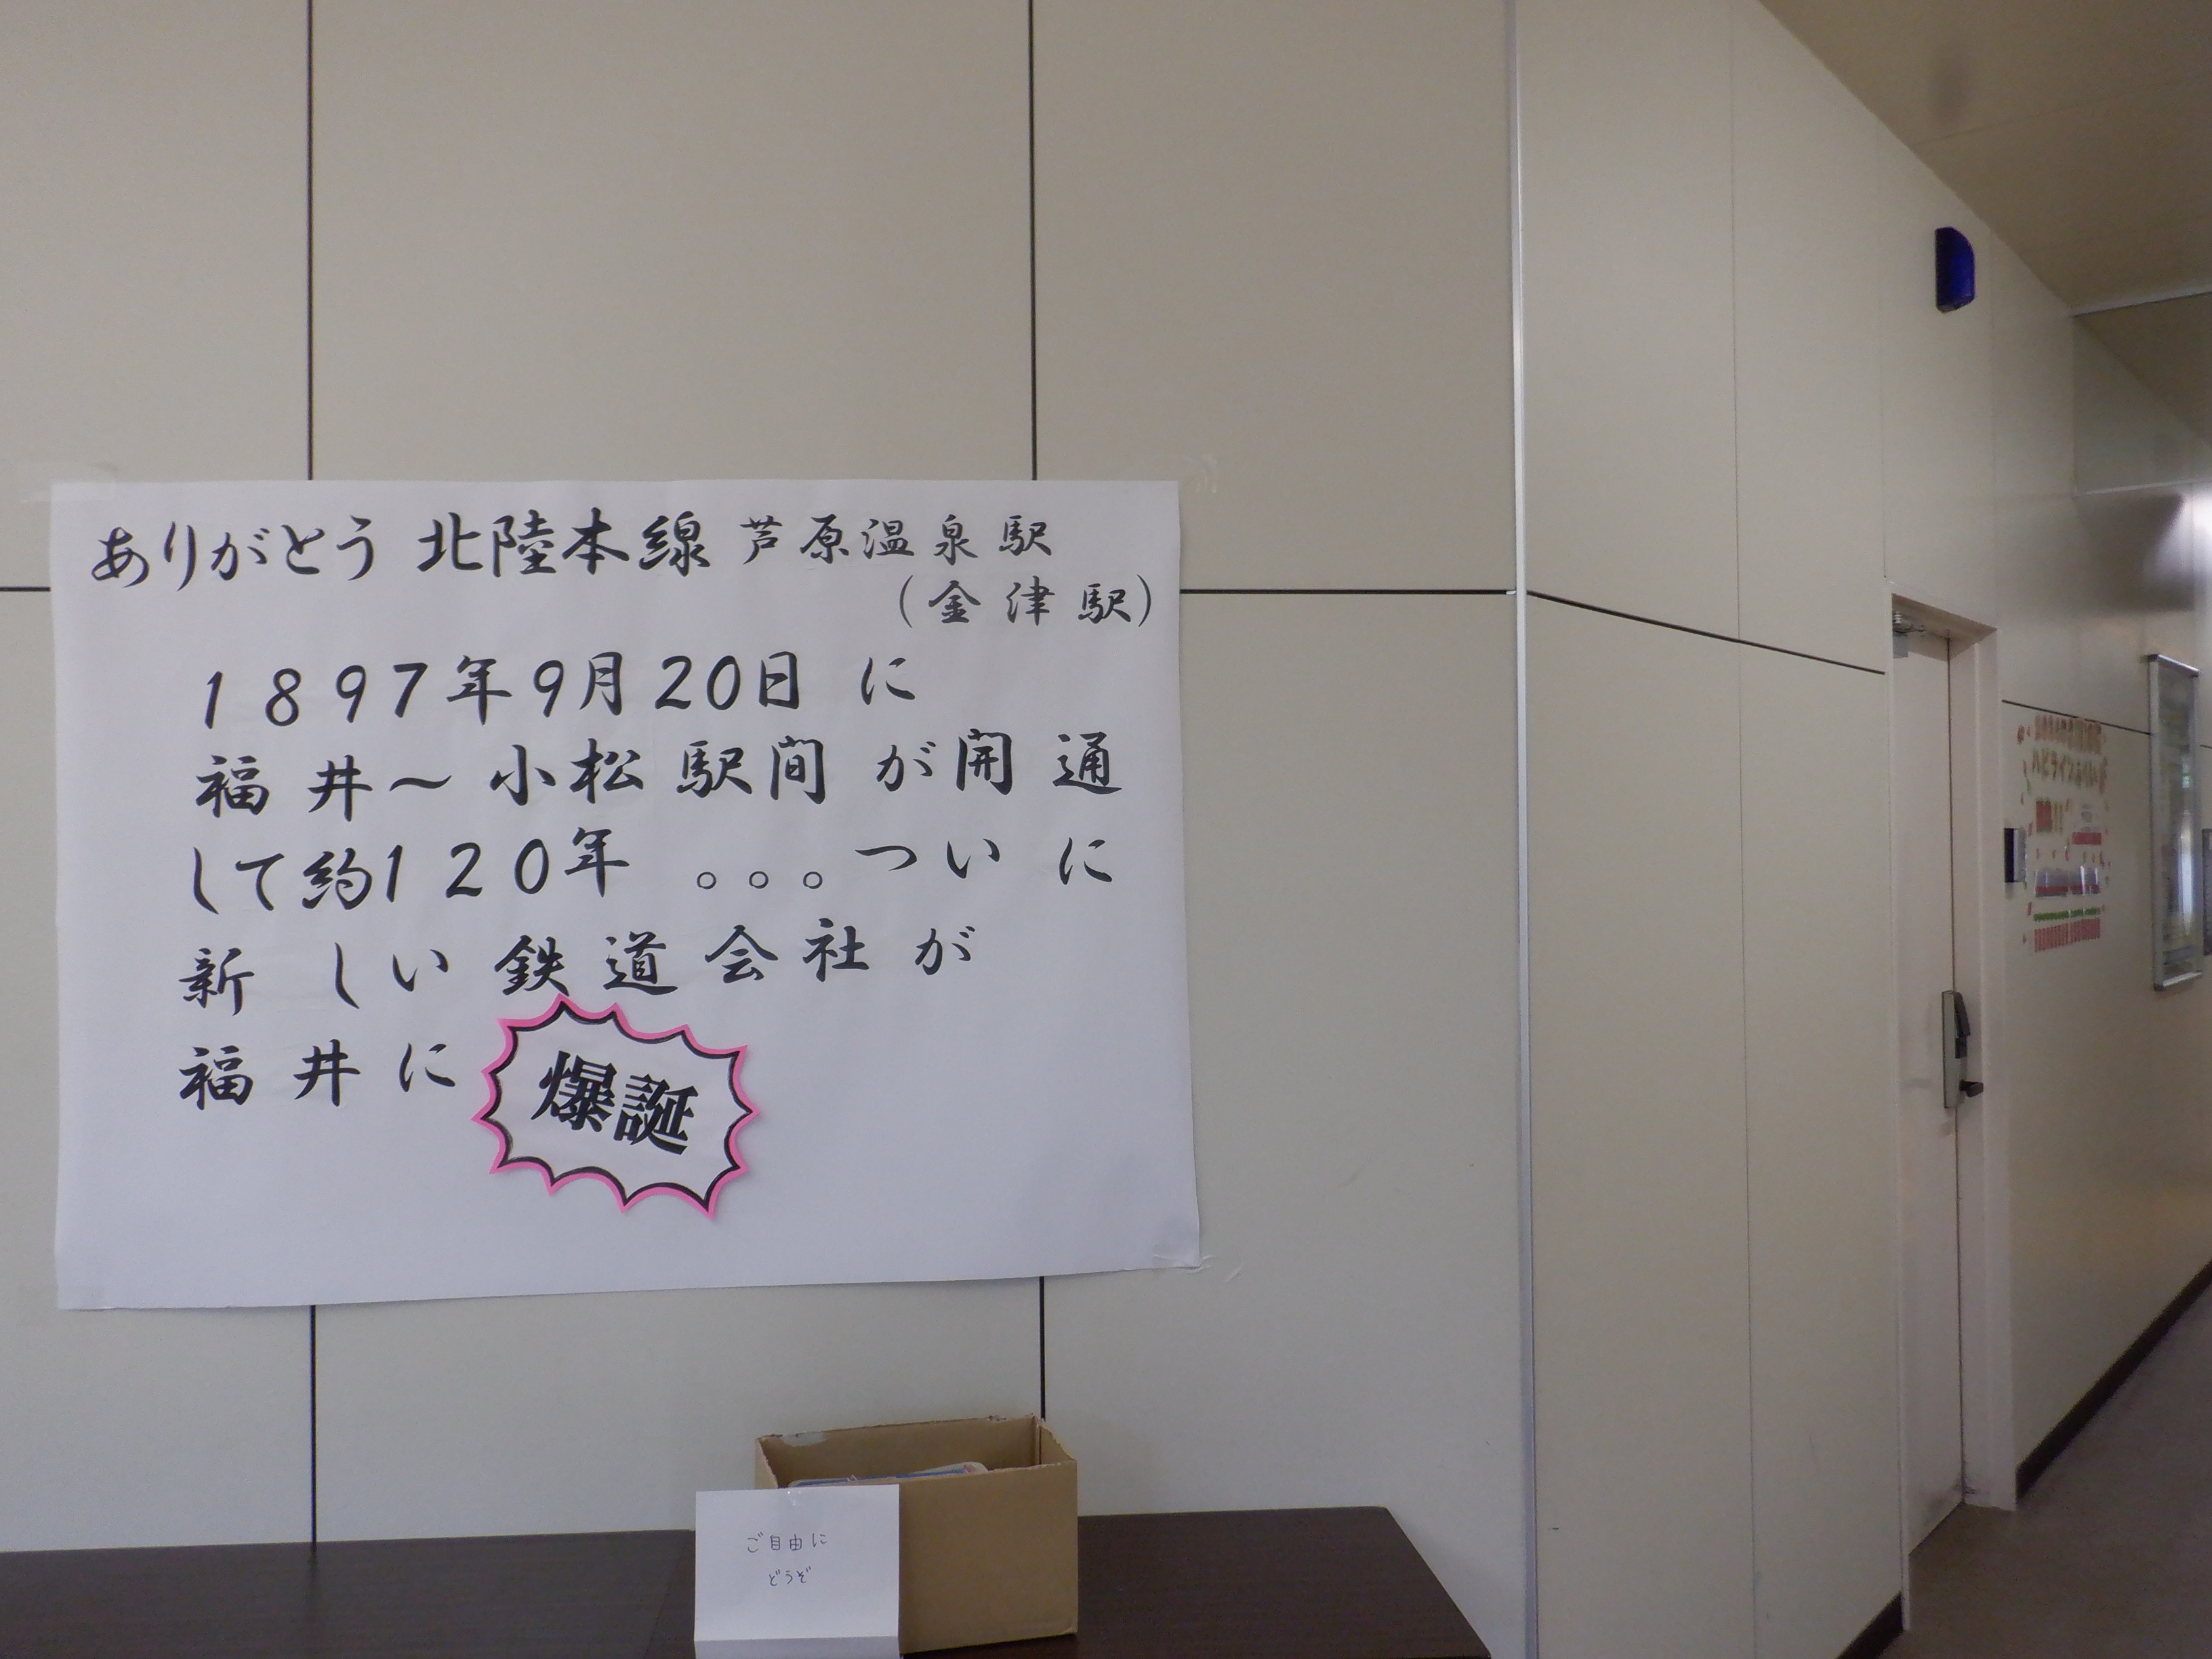 ありがとう 北陸本線 芦原温泉駅
(金津駅)
1897年9月20日に
福井～小松駅間が開通
して約120年。。。ついに
新しい鉄道会社が
福井に 爆誕
ご自由に
どうぞ
ハピラインふくい